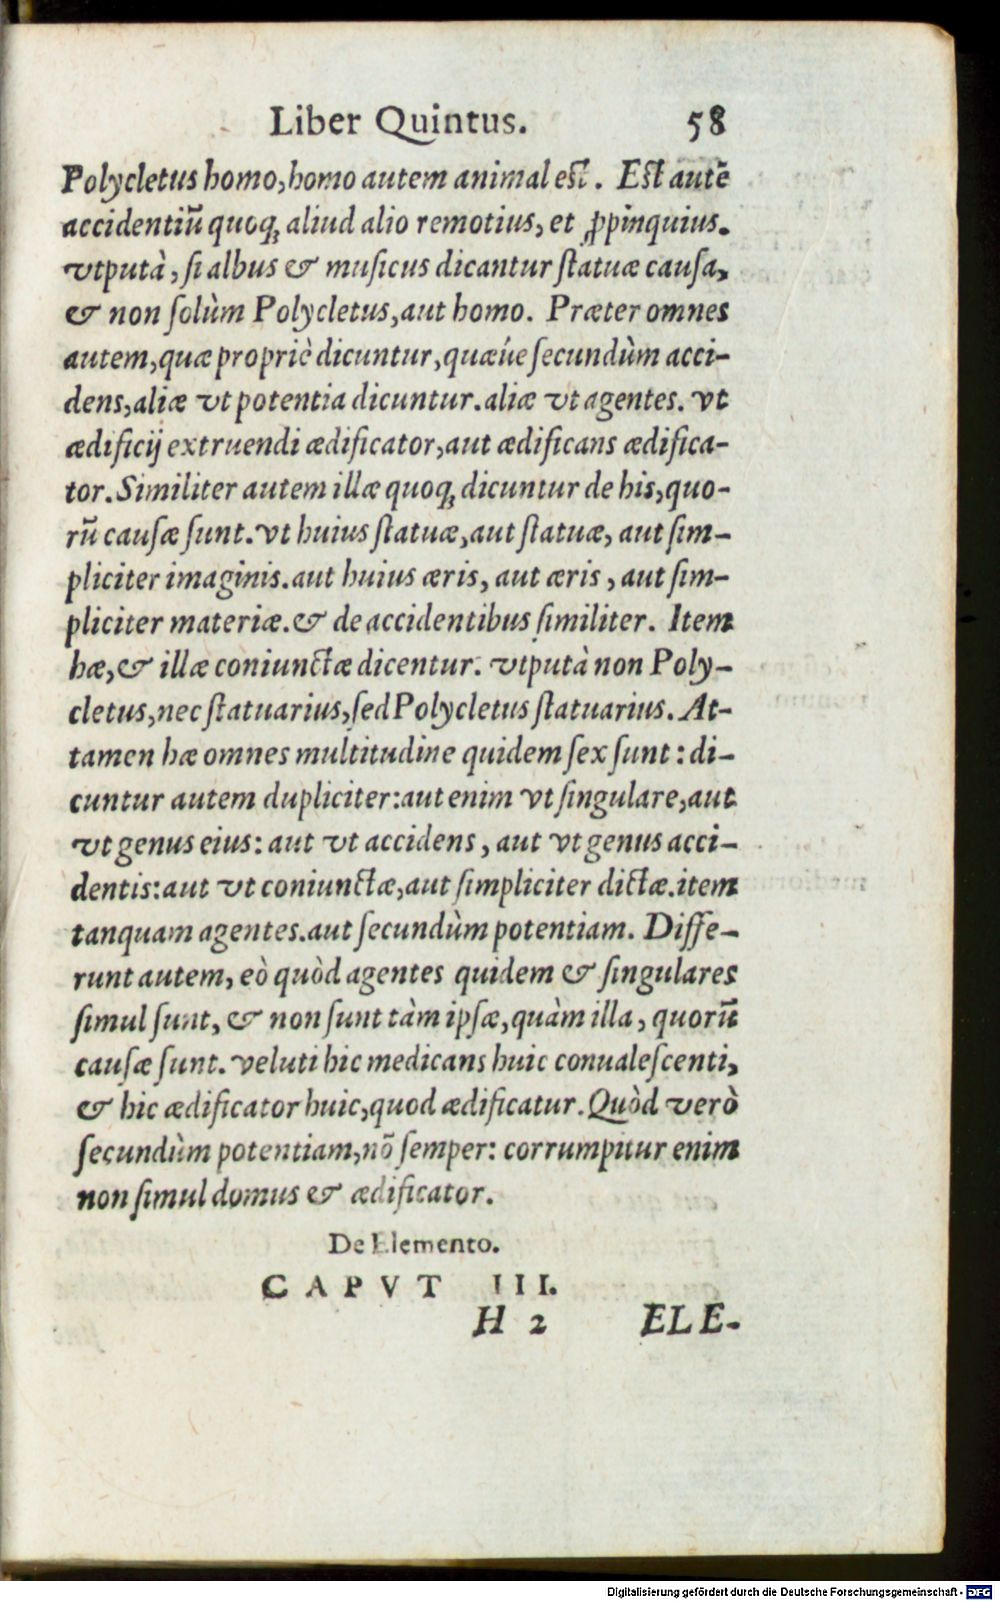 Liber Quintus. 58
Polycletus homo, homo autem animal est. Est autẽ
accidentiũ quoq; aliud alio remotius, et ꝓpinquius.
vtputà, si albus & musicus dicantur statuæ causa,
& non solùm Polycletus, aut homo. Præter omnes
autem, quæ propriè dicuntur, quæúe secundùm acci-
dens, aliæ vt potentia dicuntur. aliæ vt agentes. vt
ædificij extruendi ædificator, aut ædificans ædifica-
tor. Similiter autem illæ quoq; dicuntur de his, quo-
rũ causæ sunt. vt huius statuæ, aut statuæ, aut sim-
pliciter imaginis. aut huius æris, aut æris, aut sim-
pliciter materiæ. & de accidentibus similiter. Item
hæ, & illæ coniunctæ dicentur. vtputà non Poly-
cletus, nec statuarius, sed Polycletus statuarius. At-
tamen hæ omnes multitudine quidem sex sunt: di-
cuntur autem dupliciter: aut enim vt singulare, aut
vt genus eius: aut vt accidens, aut vt genus acci-
dentis: aut vt coniunctæ, aut simpliciter dictæ. item
tanquam agentes. aut secundùm potentiam. Diffe-
runt autem, eò quòd agentes quidem & singulares
simul sunt, & non sunt tàm ipsæ, quàm illa, quorũ
causæ sunt. veluti hic medicans huic conualescenti,
& hic ædificator huic, quod ædificatur. Quòd verò
secundùm potentiam, nõ semper: corrumpitur enim
non simul domus & ædificator.
De Elemento.
CAPVT III.
H 2 ELE-
Digitalisierung gefördert durch die Deutsche Forschungsgemeinschaft - DFG